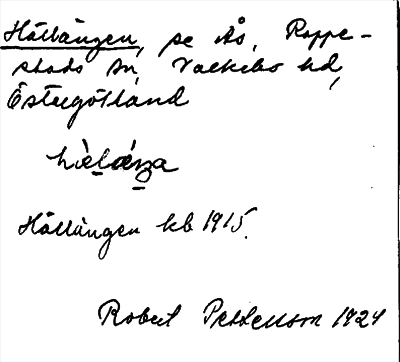 Hällängen, se Ås, Rappe-
stads sn, Valkebo hd,
Östergötland
hæ̀læ̀ŋa
Hällängen kb 1915.
Robert Pettersson 1924